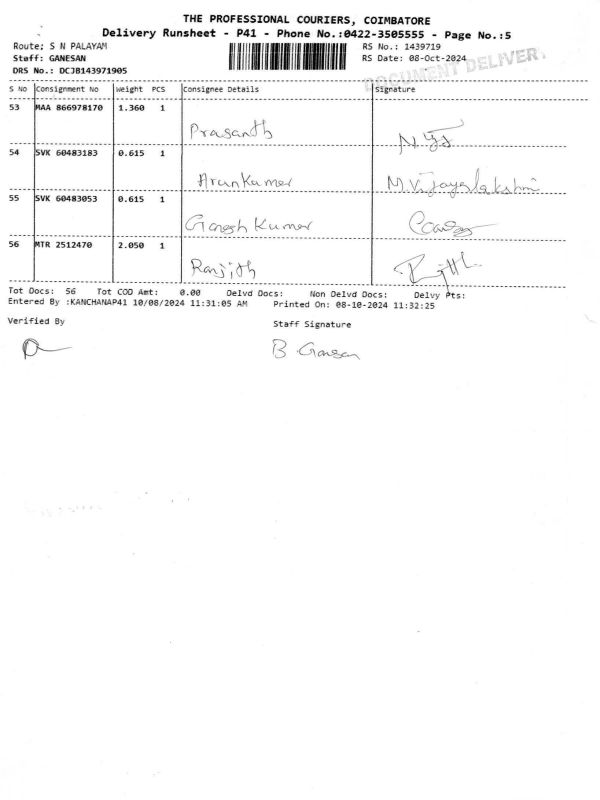 THE PROFESSIONAL COURIERS, COIMBATORE
Delivery Runsheet - P41 - Phone No.:0422-3505555 - Page No.:5
Route; S N PALAYAM RS No.: 1439719
Staff: GANESAN RS Date: 08-Oct-2024
DRS No.: DCJB143971905
DOCUMENT DELIVERY
S No Consignment No Weight PCS Consignee Details Signature
53 MAA 866978170 1.360 1
Prasanth
54 SVK 60483183 0.615 1
Arunkumar M. Vijayalakshmi
55 SVK 60483053 0.615 1
Ganesh Kumar
56 MTR 2512470 2.050 1
Ranjith Ranjith
Tot Docs: 56 Tot COD Amt: 0.00 Delvd Docs: Non Delvd Docs: Delvy Pts:
Entered By :KANCHANAP41 10/08/2024 11:31:05 AM Printed On: 08-10-2024 11:32:25
Verified By Staff Signature
B. Ganesan